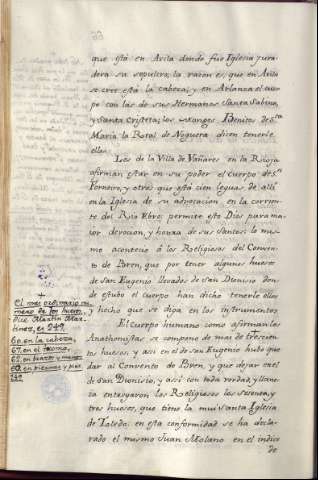 que está en Avila donde fue Iglesia jura-
dera su sepulcro, la razon es, que en Avila
se cree está la cabeza, y en Arlanza el cuer-
po con los de sus Hermanas Santa Sabina,
y Santa Cristeta; los Monges Benitos de Sta
Maria la Real de Noguera dicen tenerle
ellos.
Los de la Villa de Vañares en la Rioja
afirman estar en su poder el Cuerpo de Sn
Formerio, y otros que está cien leguas de alli
en la Iglesia de su advocacion en la corrien-
te del Rio Ebro; permite esto Dios para ma-
ior devocion, y honra de sus Santos: lo mis-
mo acontecio á los Religiosos del Conven-
to de Bren, que por tener algunos huesos
de San Eugenio llevados de San Dionisio don-
de estubo el cuerpo han dicho tenerle ellos
y hecho que se diga en los instrumentos.
El Cuerpo humano como afirman los
Anathomistas se compone de mas de trescien-
tos huesos, y asi en el de San Eugenio hubo que
dar al Convento de Bren, y que dejar en el
de San Dionisio, y asi con toda verdad, y llane-
za entregaron los Religiosos los sesenta, y
tres huesos, que tiene la mui Santa Iglesia
de Toledo: en esta conformidad se ha decla-
rado el mismo Juan Molano en el indice
de
El mas ordinario nu-
mero de los huesos,
dice Martin Mar-
tinez, es 249.
60. en la cabeza,
67. en el tronco,
62. en brazos y manos
60. en piernas y pies
249